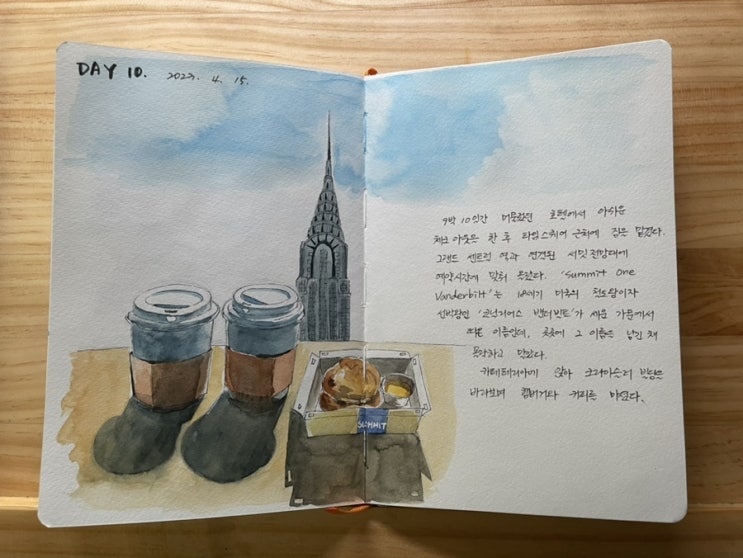 DAY 10. 2023. 4. 15.
9박 10일간 머물렀던 호텔에서 아쉬운
체크아웃을 한 후 타임스퀘어 근처에 짐을 맡겼다.
그랜드 센트럴 역과 연결된 써밋 전망대에
예약시간에 맞춰 올랐다. 'Summit One
Vanderbilt'는 19세기 미국의 철도왕이자
선박왕인 '코닐리어스 밴더빌트'가 세운 가문에서
따온 이름인데, 후손에 그 이름을 남긴 채
몰락하고 말았다.
카페테리아에 앉아 크라이슬러 빌딩을
바라보며 햄버거와 커피를 마셨다.
SUMMIT